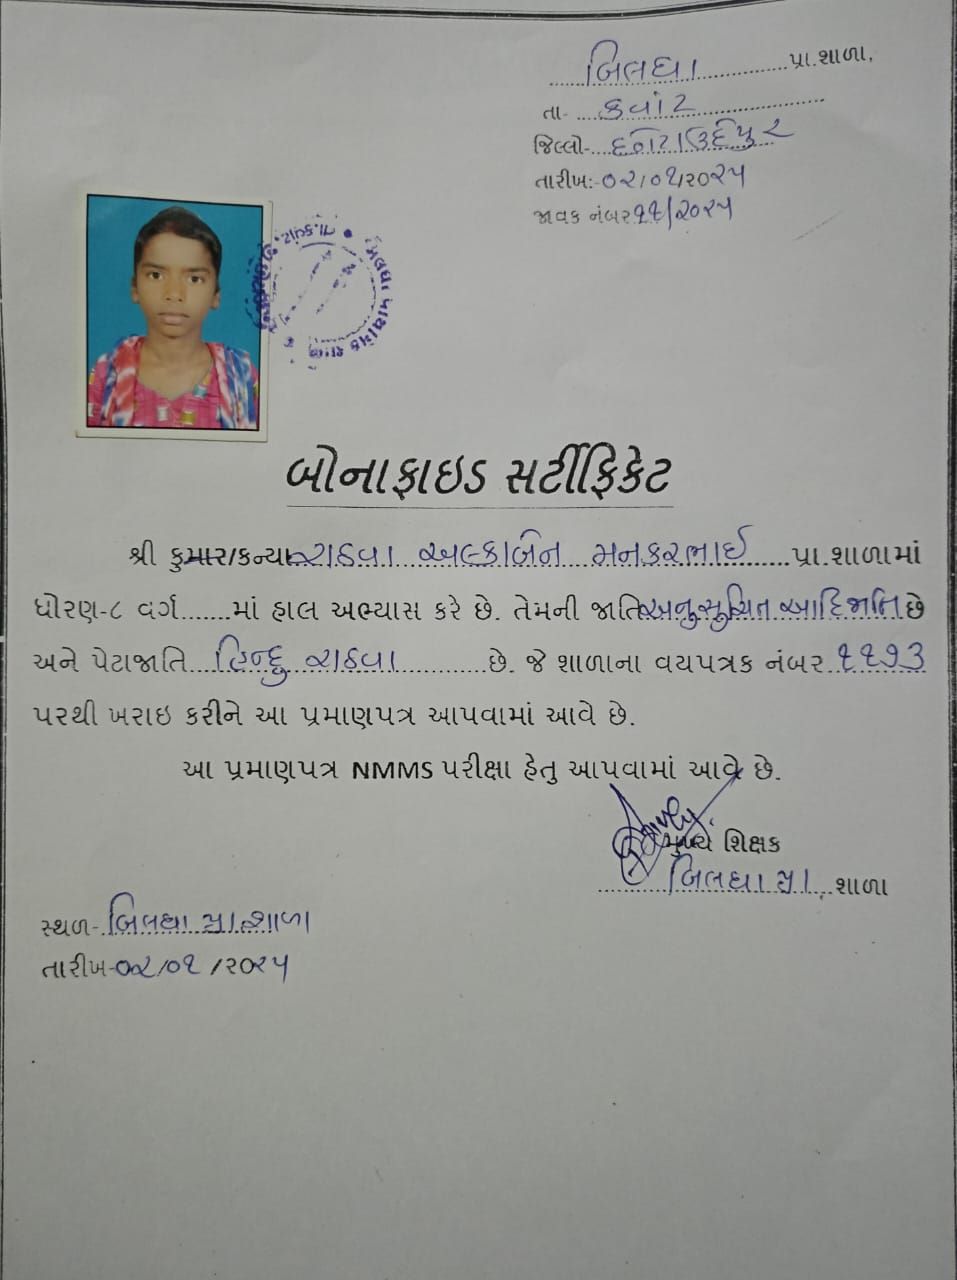 બિલધા પ્રા.શાળા,
તા- કવાંટ
જિલ્લો- છોટાઉદેપુર
તારીખ:-૦૨/૦૧/૨૦૨૫
જાવક નંબર ૧૧/૨૦૨૫
બોનાફાઇડ સર્ટીફિકેટ
શ્રી કુમાર/કન્યા રાઠવા અલ્કાબેન મનકરભાઈ પ્રા.શાળામાં
ધોરણ-૮ વર્ગ.......માં હાલ અભ્યાસ કરે છે. તેમની જાતિ અનુસુચિત આદિજાતિ છે
અને પેટાજાતિ હિન્દુ રાઠવા છે. જે શાળાના વયપત્રક નંબર ૧૧૭૩
પરથી ખરાઇ કરીને આ પ્રમાણપત્ર આપવામાં આવે છે.
આ પ્રમાણપત્ર NMMS પરીક્ષા હેતુ આપવામાં આવે છે.
મુખ્ય શિક્ષક
બિલધા પ્રા. શાળા
સ્થળ- બિલધા પ્રા.શાળા
તારીખ-૦૨/૦૧/૨૦૨૫